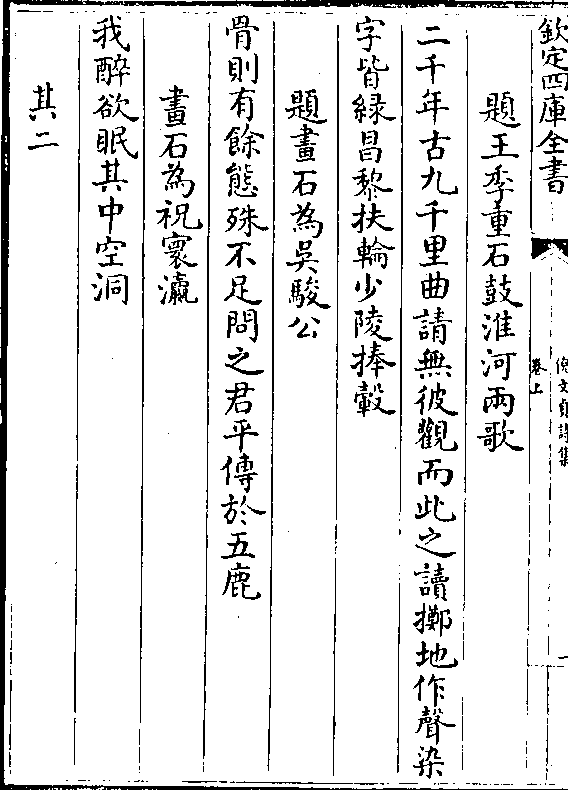 欽定四庫全書
倪文貞詩集
卷上
題王季重石鼓淮河兩歌
二千年古九千里曲請無彼觀而此之讀擲地作聲染
字皆緑昌黎扶輪少陵捧轂
題畫石為吳駿公
骨則有餘態殊不足問之君平傳於五鹿
畫石為祝寰瀛
我醉欲眠其中空洞
其二